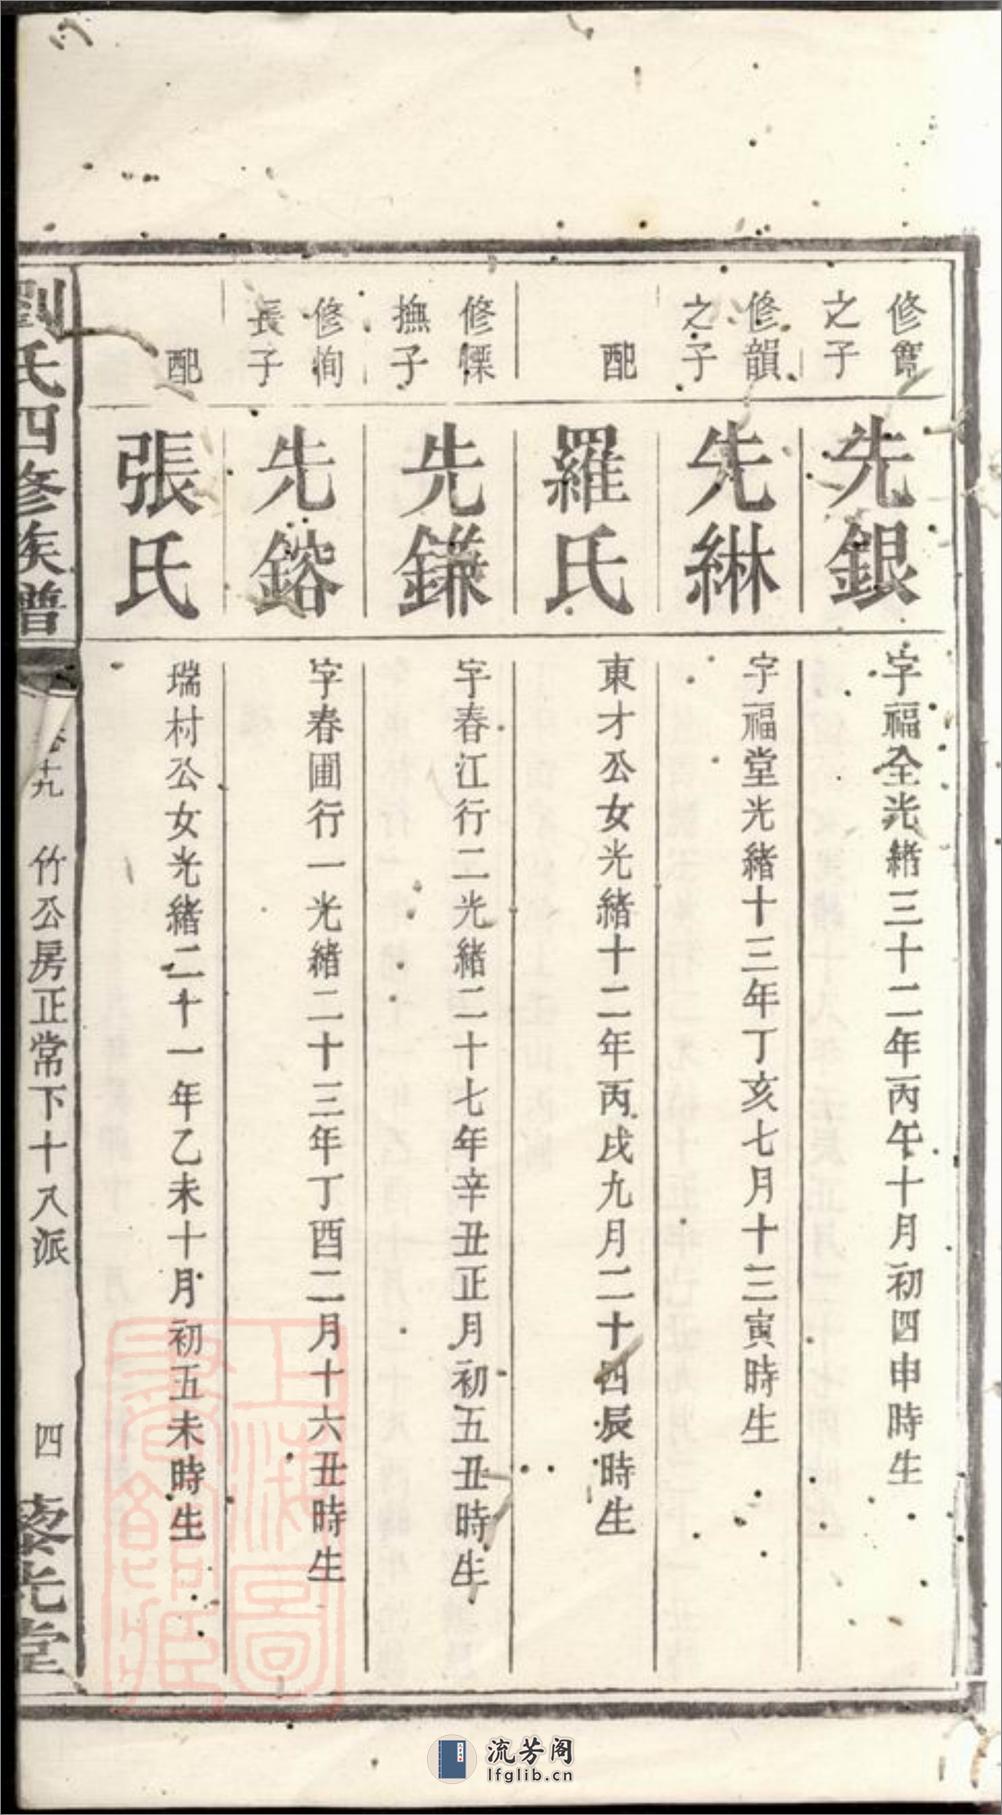 修
之子
先銀
字福全光緒三十二年丙午十月初四申時生
修韻
之子
先綝
字福堂光緒十三年丁亥七月十三寅時生
配
羅氏
東才公女光緒十二年丙戌九月二十四辰時生
修慄
撫子
先鎌
字春江行二光緒二十七年辛丑正月初五丑時生
修恂
長子
先鎔
字春圃行一光緒二十三年丁酉二月十六丑時生
配
張氏
瑞村公女光緒二十一年乙未十月初五未時生
劉氏四修族譜
卷十九 竹公房正常下十八派
四
藜光堂
上海圖書館藏
流芳阁
lfglib.cn